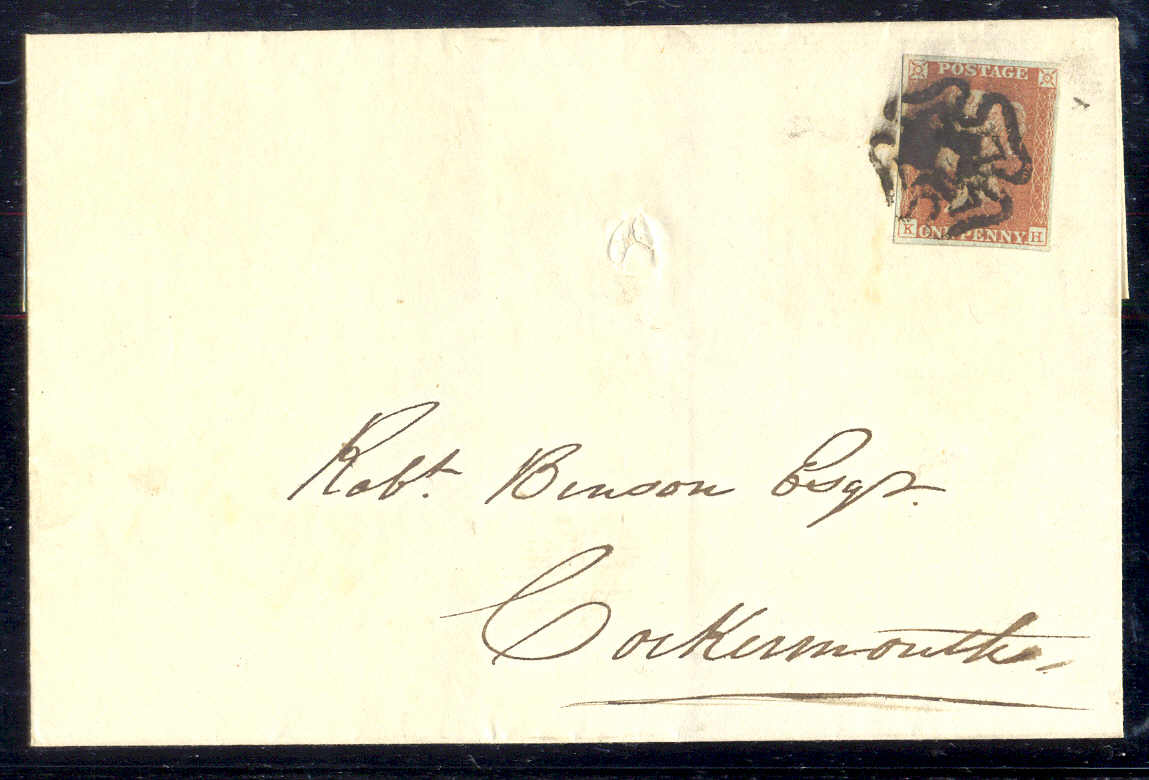 POSTAGE
K ONE PENNY H
Robt. Benson Esqr.
Cockermouth